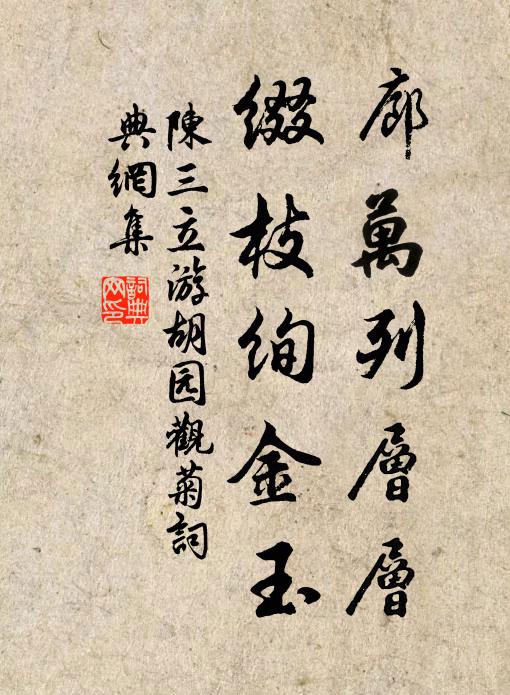 廊萬列層層
綴枝絢金玉
陳三立游胡园觀菊詞
典網集
詞典
网印